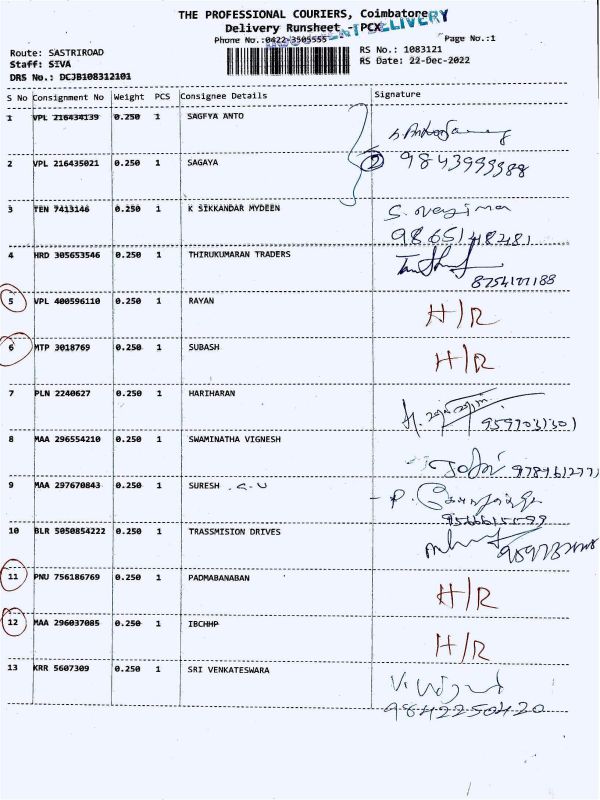 THE PROFESSIONAL COURIERS, Coimbatore
Delivery Runsheet - PCX
DOCUMENT DELIVERY
Phone No.:0422-3505555 Page No.:1
Route: SASTRIROAD RS No.: 1083121
Staff: SIVA RS Date: 22-Dec-2022
DRS No.: DCJB108312101
S No Consignment No Weight PCS Consignee Details Signature
1 VPL 216434139 0.250 1 SAGFYA ANTO
2 VPL 216435021 0.250 1 SAGAYA 2 9843999388
3 TEN 7413146 0.250 1 K SIKKANDAR MYDEEN S. Nagima
9865148281
4 HRD 305653546 0.250 1 THIRUKUMARAN TRADERS
5 VPL 400596110 0.250 1 RAYAN H/R
6 MTP 3018769 0.250 1 SUBASH H/R
7 PLN 2240627 0.250 1 HARIHARAN
8 MAA 296554210 0.250 1 SWAMINATHA VIGNESH
9 MAA 297670843 0.250 1 SURESH
10 BLR 5050854222 0.250 1 TRASSMISION DRIVES
11 PNU 756186769 0.250 1 PADMABANABAN H/R
12 MAA 296037085 0.250 1 IBCHHP H/R
13 KRR 5607309 0.250 1 SRI VENKATESWARA
9842250420